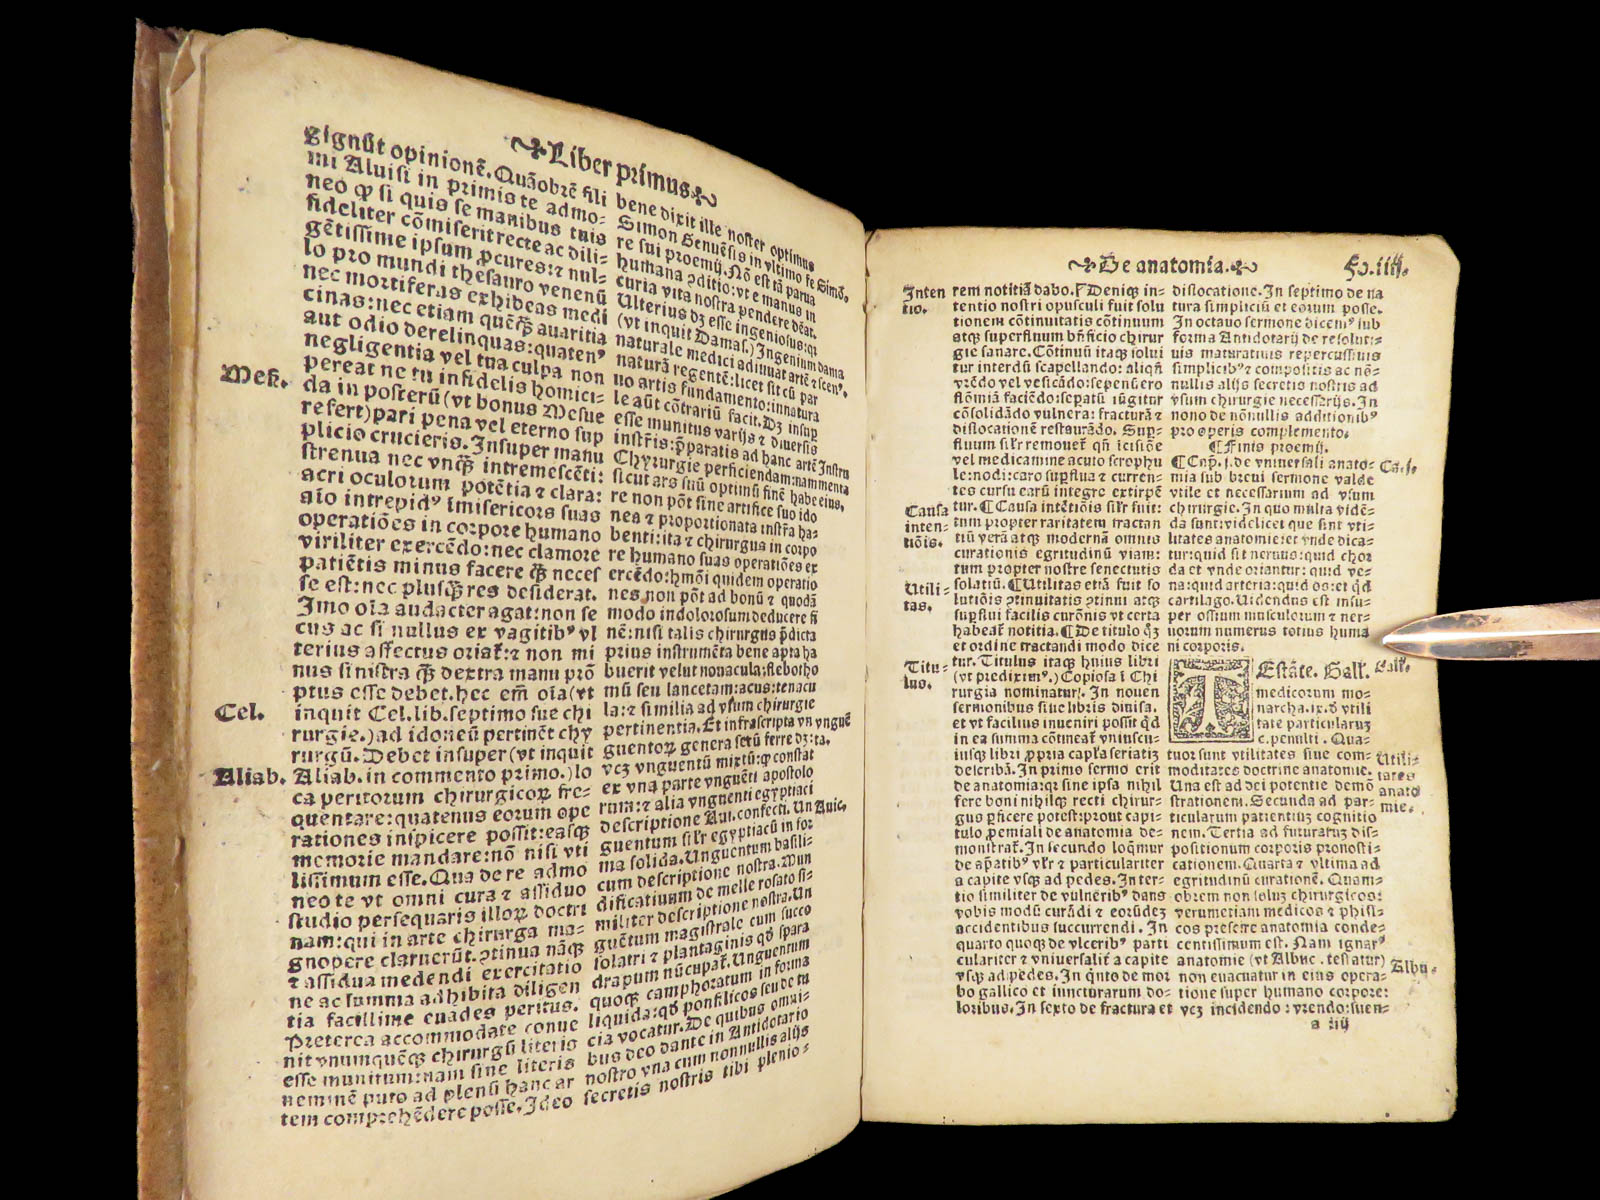 Liber primus
gignũt opinionẽ. Quãobrẽ fili
mi Aluisi in primis te admo-
neo ꝙ si quis se manibus tuis
fideliter cõmiserit recte ac dili-
gẽtissime ipsum ꝓcures: ⁊ nul-
lo pro mundi thesauro venenũ
nec mortiferas exhibeas medi
cinas: nec etiam quẽqꝫ auaritia
aut odio derelinquas: quatenꝰ
negligentia vel tua culpa non
Mesu. pereat ne tu infidelis homici-
da in posterũ (vt bonus Mesue
refert) pari pena vel eterno sup
plicio crucieris. Insuper manu
strenua nec vnqꝫ intremescẽti:
acri oculorum potẽtia ⁊ clara:
aĩo intrepidꝰ ĩmisericors suas
operatiões in corpore humano
viriliter exercẽdo: nec clamore
patiẽtis minus facere qꝫ neces
se est: nec plusqꝫ res desiderat.
Imo oĩa audacter agat: non se
cus ac si nullus ex vagitibꝰ vl
terius affectus oriat̃: ⁊ non mi
nus sinistra qꝫ dextra manu prõ
ptus esse debet. hec em̃ oĩa (vt
Cel. inquit Cel. lib. septimo sue chi
rurgie.) ad idoneũ pertinẽt chy
rurgũ. Debet insuper (vt inquit
Aliab. Aliab. in commento primo.) lo
ca peritorum chirurgicoꝝ fre-
quentare: quatenus eorum ope
rationes inspicere possit: easqꝫ
memorie mandare: nõ nisi vti
lissimum esse. Qua de re admo
neo te vt omni cura ⁊ assiduo
studio persequaris illoꝝ doctri
nam: qui in arte chirurga ma-
gnopere claruerũt. ꝯtinua nãqꝫ
⁊ assidua medendi exercitatio
ne ac summa adhibita diligen
tia facillime euades peritus.
Preterea accommodate conue
nit vnumquẽqꝫ chirurgũ literis
esse munitum: nam sine literis
neminẽ puto ad plensi hanc ar
tem comprehẽdere posse. Ideo
bene dixit ille noster optimus
Simon Genuẽsis in vltimo fe Simõ.
re sui proemij. Nõ est tã parua
humana ꝯditio: vt e manus in
curia vita nostra pendere dẽat.
Ulterius dꝫ esse ingeniosus: qꝛ
(vt inquit Damas.) Ingenium dama
naturale medici adiuuat artẽ ⁊ scenꝰ.
naturã regentẽ: licet sit cũ par
uo artis fundamento: innatura
le aũt cõtrariũ facit. Dꝫ insuꝑ
esse munitus varijs ⁊ diuersis
instr̃is: p̃paratis ad hanc artẽ Instru
Chyrurgie perficiendam: nam menta
sicut ars suũ optimũ finẽ habe eius.
re non põt sine artifice suo ido
nea ⁊ proportionata instr̃a ha-
benti: ita ⁊ chirurgus in corpo
re humano suas operatiões ex
ercẽdo: hmõi quidem operatio
nes non põt ad bonũ ⁊ quodã
modo indolorosum deducere fi
nẽ: nisi talis chirurgus p̃dicta
prius instrumẽta bene apta ha
buerit velut nouacula: flebotho
mũ seu lancetam: acus: tenacu
la: ⁊ similia ad vsum chirurgie
pertinentia. Et infrascripta vn vnguẽ
guentoꝝ genera secũ ferre dꝫ: ta.
vcꝫ vnguentũ mixtũ: qꝫ constat
ex vna parte vnguẽti apostolo
rum: ⁊ alia vnguenti egyptiaci
descriptione Aui. confecti. Un Auic.
guentum sil̃r egyptiacũ in for
ma solida. Unguentum basili-
cum descriptione nostra. Mun
dificatiuum de melle rosato si-
militer descriptione nostra. Un
guẽtum magistrale cum succo
solatri ⁊ plantaginis qď spara
drapum nũcupat̃. Unguentum
quoqꝫ camphoratum in forma
liquida: qď ponfilicos seu de tu
cia vocatur. De quibus omni-
bus deo dante in Antidotario
nostro vna cum nonnullis alijs
secretis nostris tibi plenio-
De anatomia. Fo. iiij.
Inten rem notitiã dabo. ⁋Deniqꝫ in-
tio. tentio nostri opusculi fuit solu
tionem cõtinuitatis cõtinuum
atqꝫ superfluum bñficio chirur
gie sanare. Cõtinuũ itaqꝫ solui
tur interdũ scapellando: aliqñ
vrẽdo vel vesicãdo: sepenũero
flõmiã faciẽdo: sepatũ iũgitur
cõsolidãdo vulnera: fracturã ⁊
dislocationẽ restaurãdo. Supꝛ-
fluum sil̃r remouet̃ qñ icisiõe
vel medicamine acuto scrophu
le: nodi: caro suꝑflua ⁊ curren-
tes cursu earũ integre extirpẽ
Causa tur. ⁋Causa intẽtiõis sil̃r fuit:
inten- tum propter raritatem tractan
tiõis. tiũ verã atqꝫ modernã omnis
curationis egritudinũ viam:
tum propter nostre senectutis
Utili- solatiũ. ⁋Utilitas etiã fuit so
tas. lutiõis ꝯtinuitatis ꝯtinui atqꝫ
suꝑflui facilis curõnis vt certa
habeat̃ notitia. ⁋De titulo qꝫ
et ordine tractandi modo dice
Titu- tur. Titulus itaqꝫ huius libri
lus. (vt prediximꝰ.) Copiosa ĩ Chi
rurgia nominatur. In nouem
sermonibus siue libris diuisa.
et vt facilius inueniri possit qď
in ea summa cõtineat̃ vniuscu-
iusqꝫ libri ꝓpria capl̃a seriatiꝫ
describã. In primo sermo erit
de anatomia: qꝛ sine ipsa nihil
fere boni nihilqꝫ recti chirur-
gus ꝑficere potest: prout capi-
tulo ꝓemiali de anatomia de-
monstrat̃. In secundo loq̃mur
de ap̃atibꝰ vl̃r ⁊ particulariter
a capite vsqꝫ ad pedes. In ter-
tio similiter de vulneribꝰ dans
vobis modũ curãdi ⁊ eorũdeꝫ
accidentibus succurrendi. In
quarto quoqꝫ de vlceribꝰ parti
culariter ⁊ vniuersalit̃ a capite
vsqꝫ ad pedes. In q̃nto de mor
bo gallico et iuncturarum do-
loribus. In sexto de fractura et
dislocatione. In septimo de na
tura simpliciũ et eorum posse.
In octauo sermone dicemꝰ sub
forma Antidotarij de resoluti-
uis maturatiuis repercussiuis
simplicibꝰ ⁊ compositis ac nõ-
nullis alijs secretis nostris ad
vsum chirurgie necessarijs. In
nono de nõnullis additionibꝰ
pro operis complemento.
⁋Finis proemij.
⁋Cap. j. de vniuersali anato- Ca. j.
mia sub breui sermone valde
vtile et necessarium ad vsum
chirurgie. In quo multa vidẽ-
da sunt: videlicet que sint vti-
litates anatomie: et vnde dica-
tur: quid sit neruus: quid chor
da et vnde oriantur: quid ve-
na: quid arteria: quid os: et qď
cartilago. Uidendus est insu-
per ossium musculorum ⁊ ner-
uorum numerus totius huma
ni corporis.
TEstãte. Gall. Gall.
medicorum mo-
narcha. ix. ð vtili
tate particularuꝫ
c. penulti. Qua-
tuor sunt vtilitates siue com- Utili-
moditates doctrine anatomie. tates
Una est ad dei potentie demõ anato
strationem. Secunda ad par- mie.
ticularum patientiuꝫ cognitio
nem. Tertia ad futuratuꝫ dis-
positionum corporis pronosti-
cationem. Quarta ⁊ vltima ad
egritudinũ curationẽ. Quam-
obrem non soluꝫ chirurgicos:
verumetiam medicos ⁊ phisi-
cos presetre anatomia conde-
centissimum est. Nam ignarꝰ
anatomie (vt Albuc. testatur) Albu.
non euacuatur in eius opera-
tione super humano corpore:
vcꝫ incidendo: vrendo: suen-
a iiij